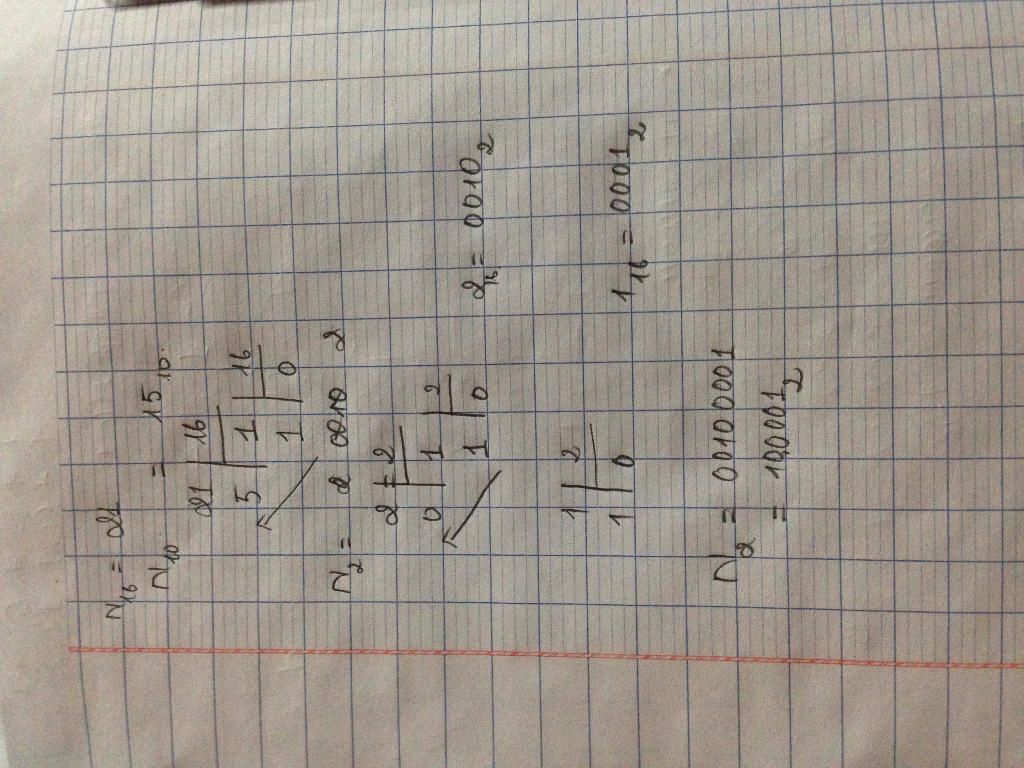 N16 = 21
N10 = 15 10.
21 16
5 1 16
1 0
N2 = 2 0010 2
2 2
0 1 2
1 0
2 16 = 0010 2
1 2
1 0
1 16 = 0001 2
N2 = 0010 0001
= 100001 2